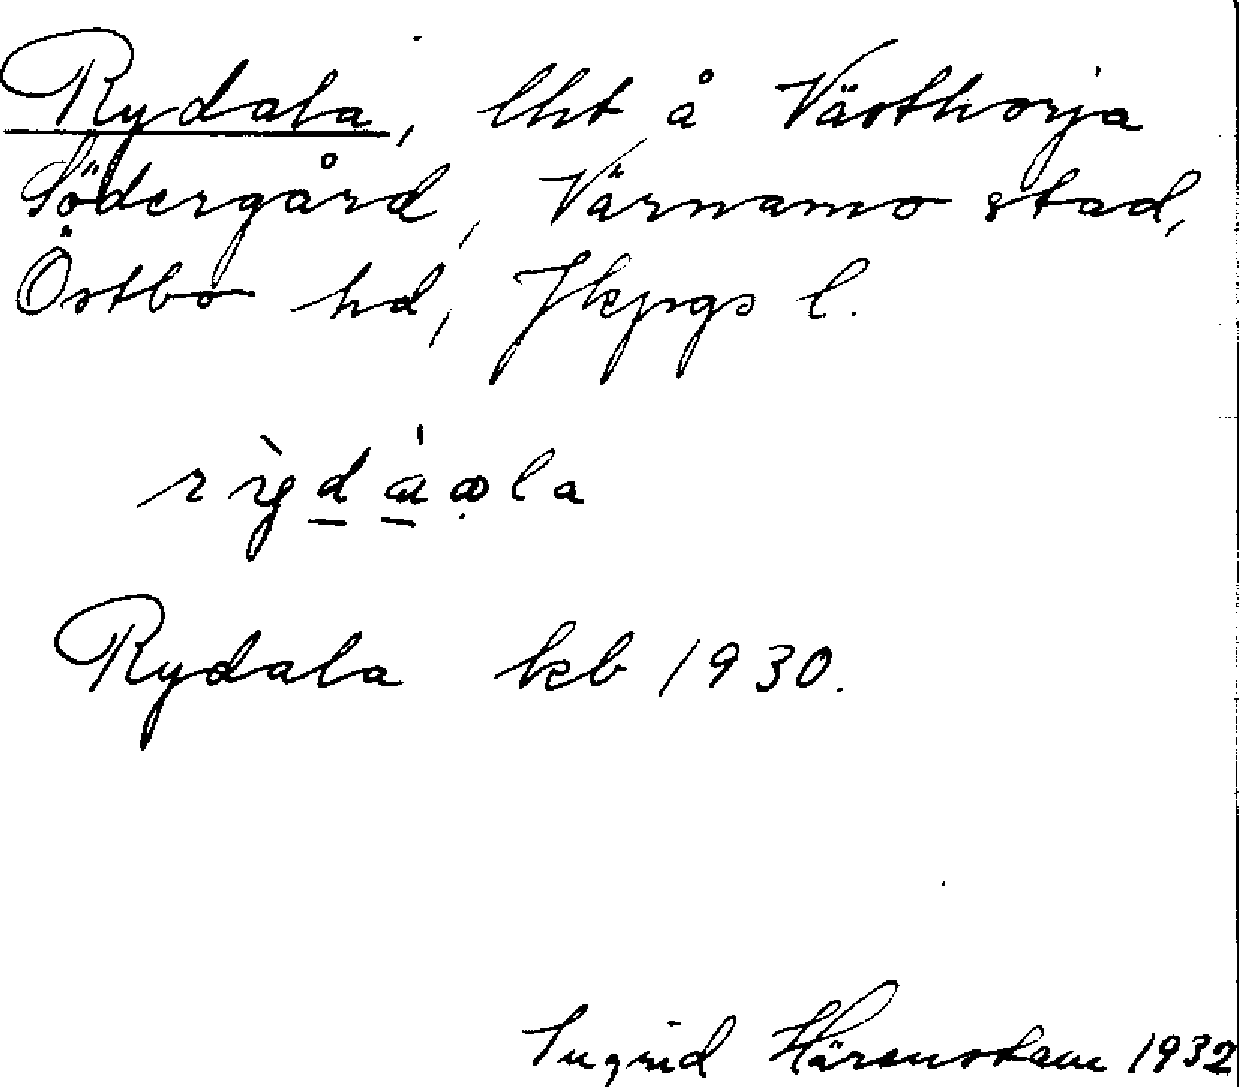 Rydala, lht å Västhorja
Södergård, Värnamo stad,
Östbo hd, Jkpgs l.
rỳdáala
Rydala kb 1930.
Ingrid Härenstam 1932